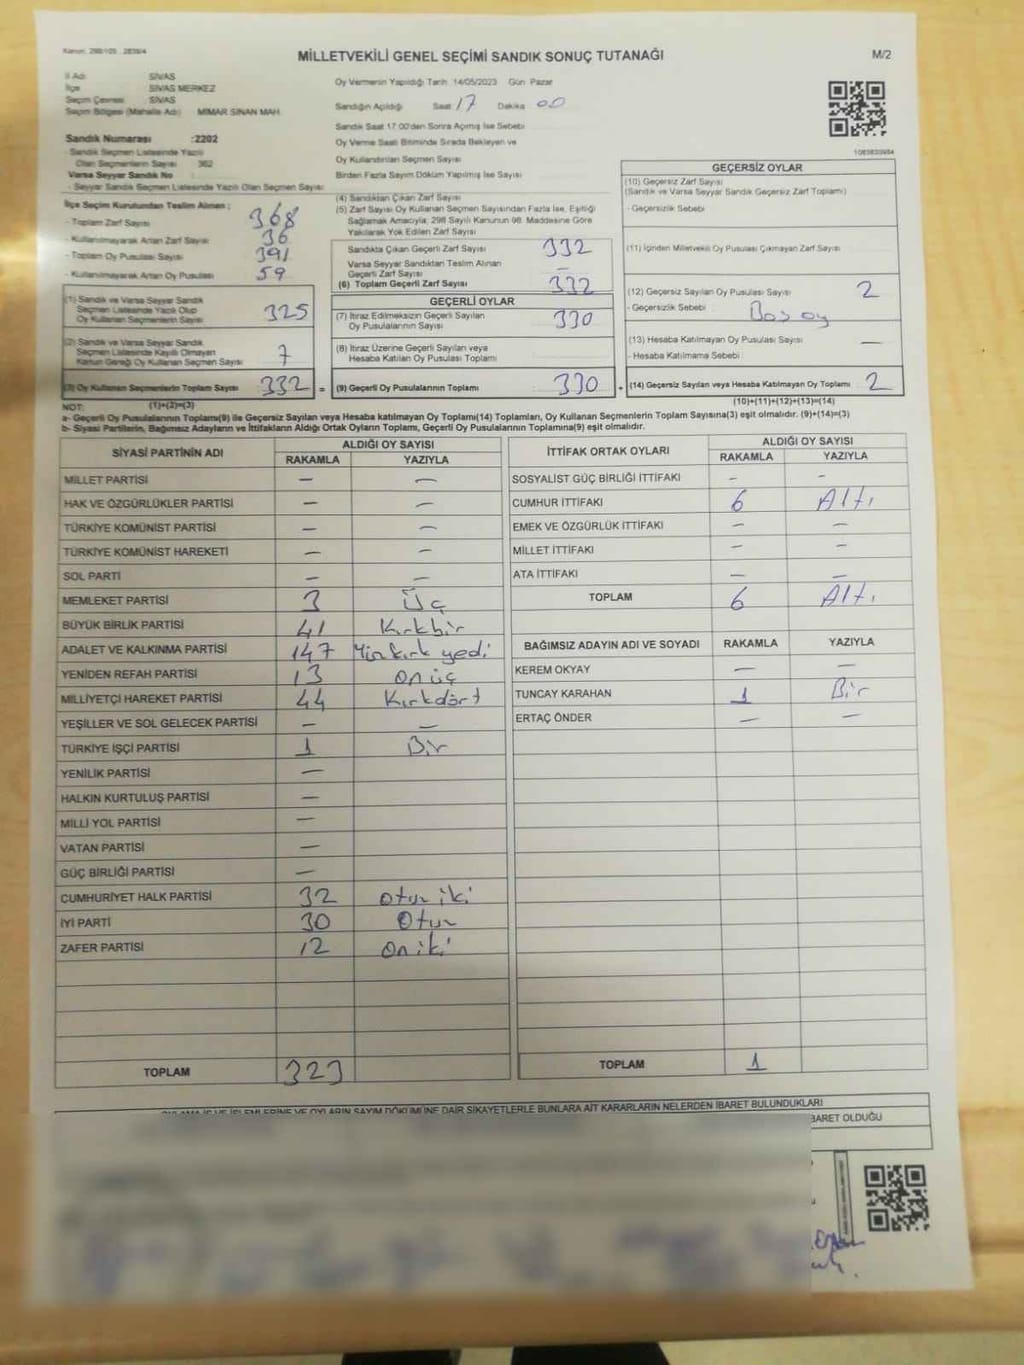 Kanun: 298/105 , 2839/4
MİLLETVEKİLİ GENEL SEÇİMİ SANDIK SONUÇ TUTANAĞI
M/2
İl Adı SİVAS
İlçe SİVAS MERKEZ
Seçim Çevresi SİVAS
Seçim Bölgesi (Mahalle Adı) MİMAR SİNAN MAH.
Sandık Numarası :2202
- Sandık Seçmen Listesinde Yazılı
Olan Seçmenlerin Sayısı : 362
Varsa Seyyar Sandık No :
- Seyyar Sandık Seçmen Listesinde Yazılı Olan Seçmen Sayısı:
İlçe Seçim Kurulundan Teslim Alınan ;
- Toplam Zarf Sayısı 368
- Kullanılmayarak Artan Zarf Sayısı 36
- Toplam Oy Pusulası Sayısı 391
- Kullanılmayarak Artan Oy Pusulası 59
(1) Sandık ve Varsa Seyyar Sandık
Seçmen Listesinde Yazılı Olup
Oy Kullanan Seçmenlerin Sayısı 325
(2) Sandık ve Varsa Seyyar Sandık
Seçmen Listesinde Kayıtlı Olmayan
Kanun Gereği Oy Kullanan Seçmen Sayısı 7
(3) Oy Kullanan Seçmenlerin Toplam Sayısı 332 =
(1)+(2)=(3)
Oy Vermenin Yapıldığı Tarih 14/05/2023 Gün Pazar
Sandığın Açıldığı Saat 17 Dakika 00
Sandık Saat 17:00'den Sonra Açılmış İse Sebebi
Oy Verme Saati Bitiminde Sırada Bekleyen ve
Oy Kullandırılan Seçmen Sayısı
Birden Fazla Sayım Döküm Yapılmış İse Sayısı
(4) Sandıktan Çıkan Zarf Sayısı
(5) Zarf Sayısı Oy Kullanan Seçmen Sayısından Fazla İse, Eşitliği
Sağlamak Amacıyla; 298 Sayılı Kanunun 98. Maddesine Göre
Yakılarak Yok Edilen Zarf Sayısı
Sandıkta Çıkan Geçerli Zarf Sayısı 332
Varsa Seyyar Sandıktan Teslim Alınan
Geçerli Zarf Sayısı –
(6) Toplam Geçerli Zarf Sayısı 332
GEÇERLİ OYLAR
(7) İtiraz Edilmeksizin Geçerli Sayılan
Oy Pusulalarının Sayısı 330
(8) İtiraz Üzerine Geçerli Sayılan veya
Hesaba Katılan Oy Pusulası Toplamı
(9) Geçerli Oy Pusulalarının Toplamı 330 +
1083833984
GEÇERSİZ OYLAR
(10) Geçersiz Zarf Sayısı
(Sandık ve Varsa Seyyar Sandık Geçersiz Zarf Toplamı)
- Geçersizlik Sebebi
(11) İçinden Milletvekili Oy Pusulası Çıkmayan Zarf Sayısı
(12) Geçersiz Sayılan Oy Pusulası Sayısı 2
- Geçersizlik Sebebi Boş oy
(13) Hesaba Katılmayan Oy Pusulası Sayısı —
- Hesaba Katılmama Sebebi
(14) Geçersiz Sayılan veya Hesaba Katılmayan Oy Toplamı 2
(10)+(11)+(12)+(13)=(14)
NOT:
a- Geçerli Oy Pusulalarının Toplamı(9) ile Geçersiz Sayılan veya Hesaba katılmayan Oy Toplamı(14) Toplamları, Oy Kullanan Seçmenlerin Toplam Sayısına(3) eşit olmalıdır. (9)+(14)=(3)
b- Siyasi Partilerin, Bağımsız Adayların ve İttifakların Aldığı Ortak Oyların Toplamı, Geçerli Oy Pusulalarının Toplamına(9) eşit olmalıdır.
SİYASİ PARTİNİN ADI ALDIĞI OY SAYISI
RAKAMLA YAZIYLA
MİLLET PARTİSİ — —
HAK VE ÖZGÜRLÜKLER PARTİSİ — —
TÜRKİYE KOMÜNİST PARTİSİ — —
TÜRKİYE KOMÜNİST HAREKETİ — —
SOL PARTİ — —
MEMLEKET PARTİSİ 3 Üç
BÜYÜK BİRLİK PARTİSİ 41 Kırkbir
ADALET VE KALKINMA PARTİSİ 147 Yüzkırk yedi
YENİDEN REFAH PARTİSİ 13 onüç
MİLLİYETÇİ HAREKET PARTİSİ 44 Kırkdört
YEŞİLLER VE SOL GELECEK PARTİSİ — —
TÜRKİYE İŞÇİ PARTİSİ 1 Bir
YENİLİK PARTİSİ —
HALKIN KURTULUŞ PARTİSİ —
MİLLİ YOL PARTİSİ —
VATAN PARTİSİ —
GÜÇ BİRLİĞİ PARTİSİ —
CUMHURİYET HALK PARTİSİ 32 otuz iki
İYİ PARTİ 30 Otuz
ZAFER PARTİSİ 12 on iki
TOPLAM 323
İTTİFAK ORTAK OYLARI ALDIĞI OY SAYISI
RAKAMLA YAZIYLA
SOSYALİST GÜÇ BİRLİĞİ İTTİFAKI – –
CUMHUR İTTİFAKI 6 Altı
EMEK VE ÖZGÜRLÜK İTTİFAKI – –
MİLLET İTTİFAKI – –
ATA İTTİFAKI — —
TOPLAM 6 Altı
BAĞIMSIZ ADAYIN ADI VE SOYADI RAKAMLA YAZIYLA
KEREM OKYAY — —
TUNCAY KARAHAN 1 Bir
ERTAÇ ÖNDER — —
TOPLAM 1
OYLAMA İŞ VE İŞLEMLERİNE VE OYLARIN SAYIM DÖKÜMÜNE DAİR ŞİKAYETLERLE BUNLARA AİT KARARLARIN NELERDEN İBARET BULUNDUKLARI
BARET OLDUĞU